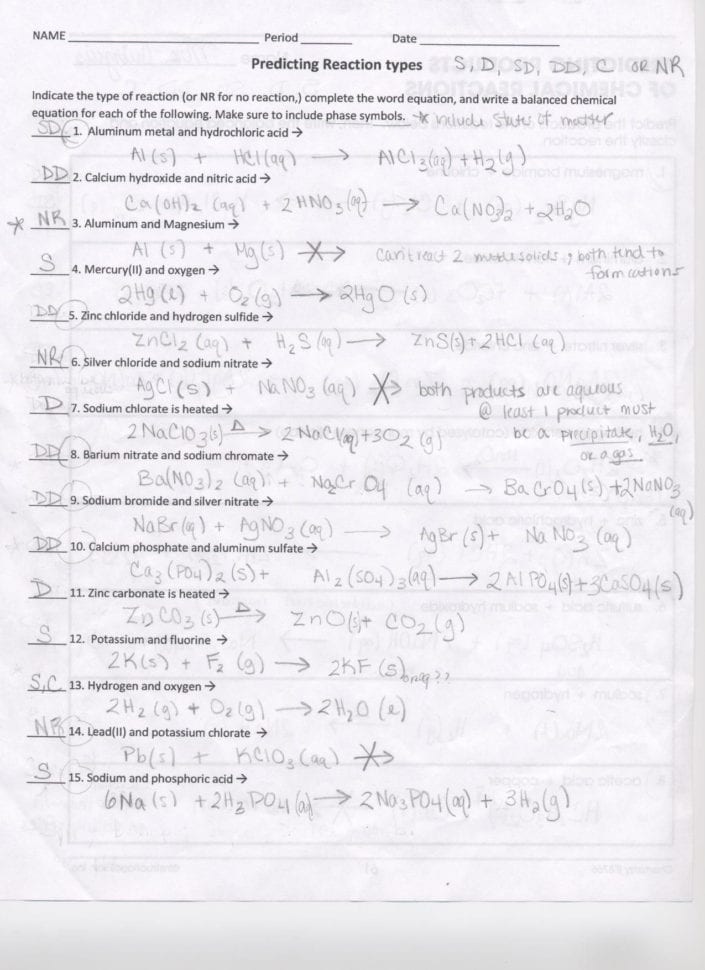 NAME ____ Period ____ Date ____
Predicting Reaction types S, D, SD, DD, C OR NR
Indicate the type of reaction (or NR for no reaction,) complete the word equation, and write a balanced chemical
equation for each of the following. Make sure to include phase symbols. * include states of matter
SD 1. Aluminum metal and hydrochloric acid →
Al(s) + HCl(aq) → AlCl3(aq) + H2(g)
DD 2. Calcium hydroxide and nitric acid →
Ca(OH)2 (aq) + 2HNO3(aq) → Ca(NO3)2 + 2H2O
* NR 3. Aluminum and Magnesium →
Al (s) + Mg(s) → can't react 2 solids, both tend to
form cations
S 4. Mercury(II) and oxygen →
2Hg(l) + O2(g) → 2HgO(s)
DD 5. Zinc chloride and hydrogen sulfide →
ZnCl2(aq) + H2S(aq) → ZnS(s) + 2HCl (aq)
NR 6. Silver chloride and sodium nitrate →
AgCl(s) + NaNO3(aq) → both products are aqueous
@ least 1 product must
be a precipitate, H2O,
or a gas
D 7. Sodium chlorate is heated →
2NaClO3(s) Δ→ 2NaCl(aq) + 3O2(g)
DD 8. Barium nitrate and sodium chromate →
Ba(NO3)2 (aq) + Na2CrO4 (aq) → BaCrO4(s) + 2NaNO3
(aq)
DD 9. Sodium bromide and silver nitrate →
NaBr(aq) + AgNO3(aq) → AgBr(s) + NaNO3(aq)
DD 10. Calcium phosphate and aluminum sulfate →
Ca3(PO4)2(s) + Al2(SO4)3(aq) → 2AlPO4(s) + 3CaSO4(s)
D 11. Zinc carbonate is heated →
ZnCO3(s) Δ→ ZnO(s) + CO2(g)
S 12. Potassium and fluorine →
2K(s) + F2 (g) → 2KF(s) or aq??
S,C 13. Hydrogen and oxygen →
2H2(g) + O2(g) → 2H2O(l)
NR 14. Lead(II) and potassium chlorate →
Pb(s) + KClO3(aq) →
S 15. Sodium and phosphoric acid →
6Na(s) + 2H3PO4(aq) → 2Na3PO4(aq) + 3H2(g)